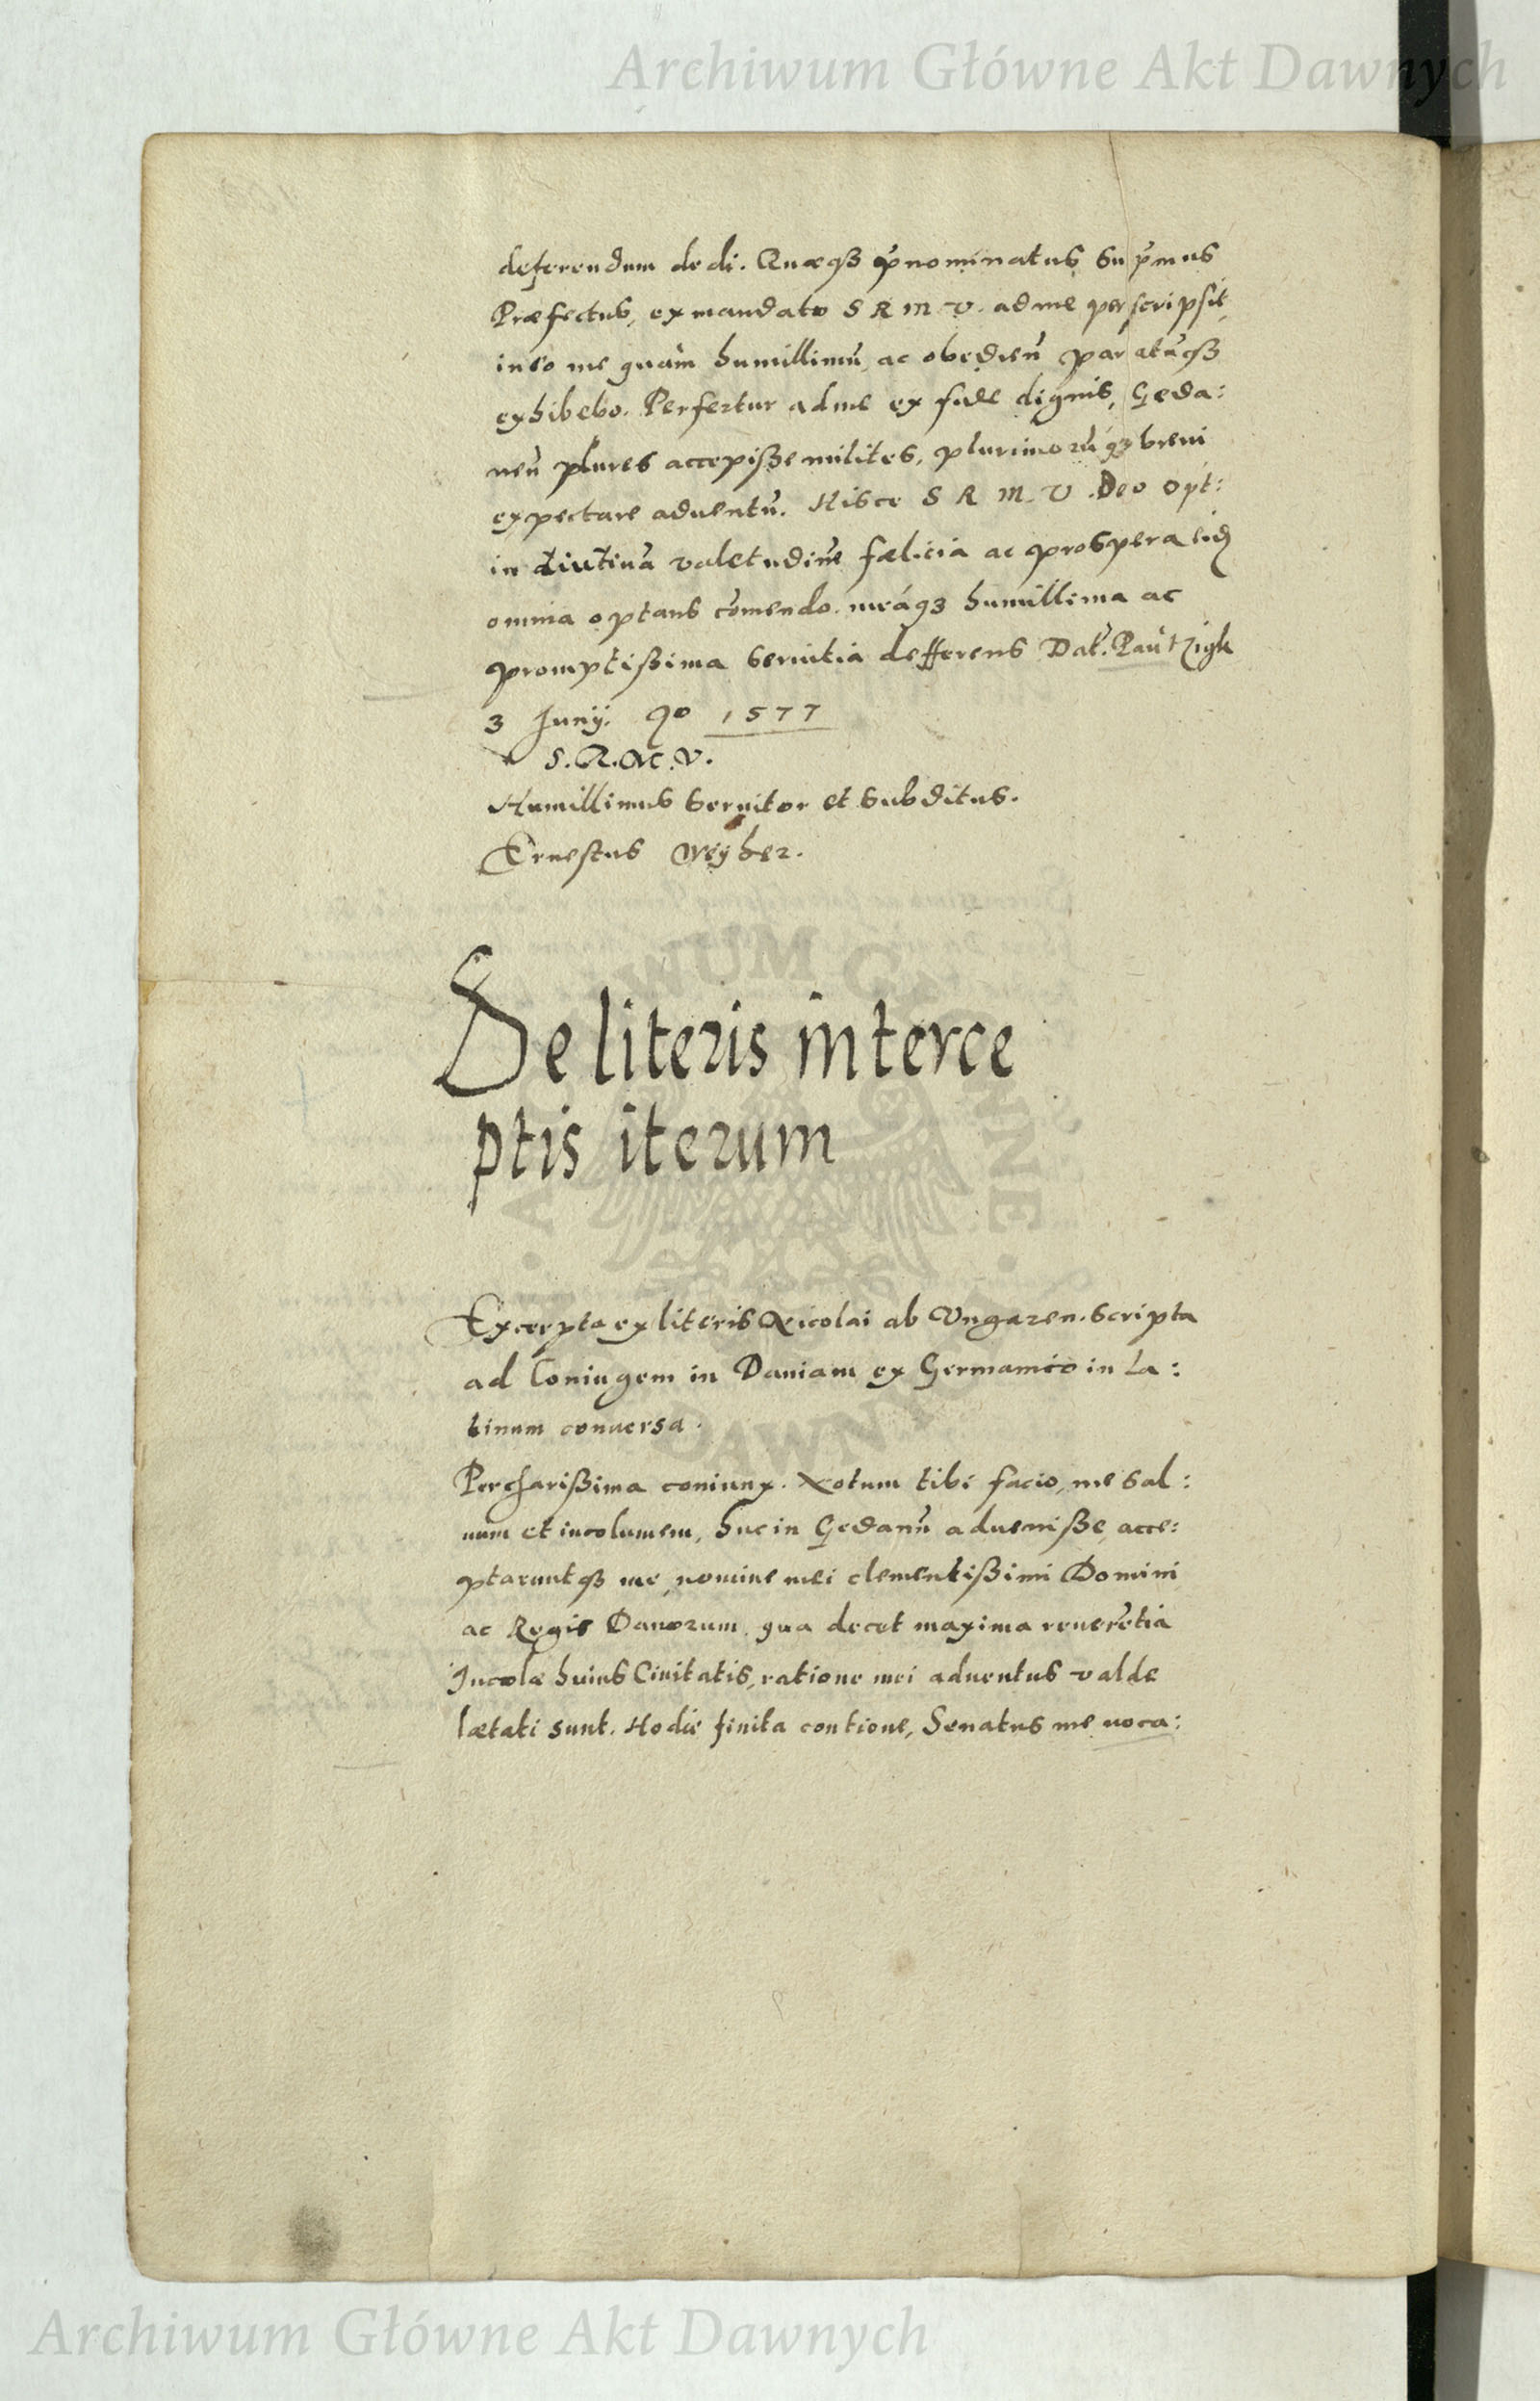 Archiwum Główne Akt Dawnych
deferendum dedi. Quæqȝ p̃nominatus Sup̃mus
Præfectus, ex mandato S R M V. ad me perscripsit,
in eo me quàm humillimũ, ac obedieñ paratũqȝ
exhibebo. Perfertur ad me ex fide dignis, Geda:
neñ plures accepiße milites, plurimorũqȝ breui
expectare aduentũ. Hisce S R M V. Deo Opt:
in diutinã valetudinẽ fælicia ac prospera
omnia optans com̃endo. meáqȝ humillima ac
promptißima seruitia defferens Dat̃. Pautzigk
3 Junij. Aº 1577
S. R. M. V.
Humillimus Seruitor et Subditus.
Ernestus Weyher.
De literis interce
ptis iterum
Excerpta ex literis Nicolai ab Vngaren. scripta
ad Coniugem in Daniam ex Germanico in La:
tinum conuersa.
Percharißima coniunx. Notum tibi facio, me sal:
uum et incolumem, huc in Gedanũ adueniße, acce:
ptaruntqȝ me nomine mei clementißimi Domini
ac Regis Danorum, qua decet maxima reuerẽtia
Incolæ huius Ciuitatis, ratione mei aduentus valde
lætati sunt. Hodie finita contione, Senatus me uoca:
Archiwum Główne Akt Dawnych